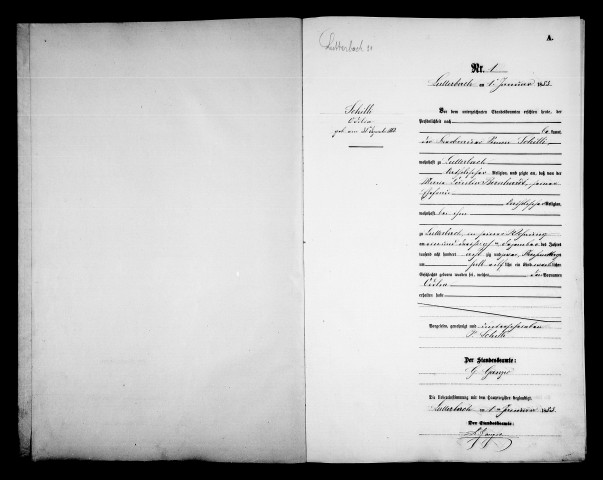 Lutterbach
A.
Nr. 1
Lutterbach am 1. Januar 1883.
Schilli
Odilia
Vor dem unterzeichneten Standesbeamten erschien heute, der
Persönlichkeit nach
kannt,
Schilli
wohnhaft zu Lutterbach
katholischer Religion, und zeigte an, daß von der
Maria Bernhardt, seiner
Ehefrau
katholischer Religion,
wohnhaft bei ihm
zu Lutterbach, in seiner Wohnung
am ein und dreißigsten Dezember des Jahres
tausend acht hundert achtzig und zwei, Nachmittags
um halb elf Uhr ein Kind weiblichen
Geschlechts geboren worden sei, welches den Vornamen
Odilia
erhalten habe
Vorgelesen, genehmigt und unterschrieben
Schilli
Der Standesbeamte:
Die Uebereinstimmung mit dem Hauptregister beglaubigt.
Lutterbach am 1. Januar 1883.
Der Standesbeamte: